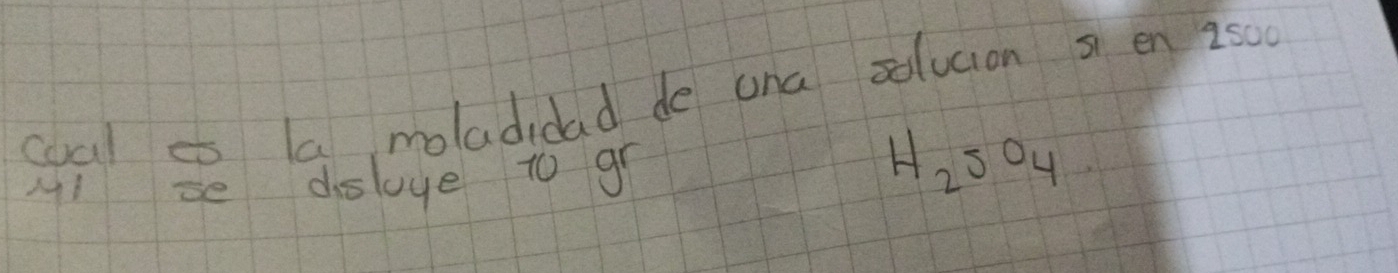 cual es la moladidad de una solucion si en 2500
Ml se disluye 10 gr H₂SO₄.